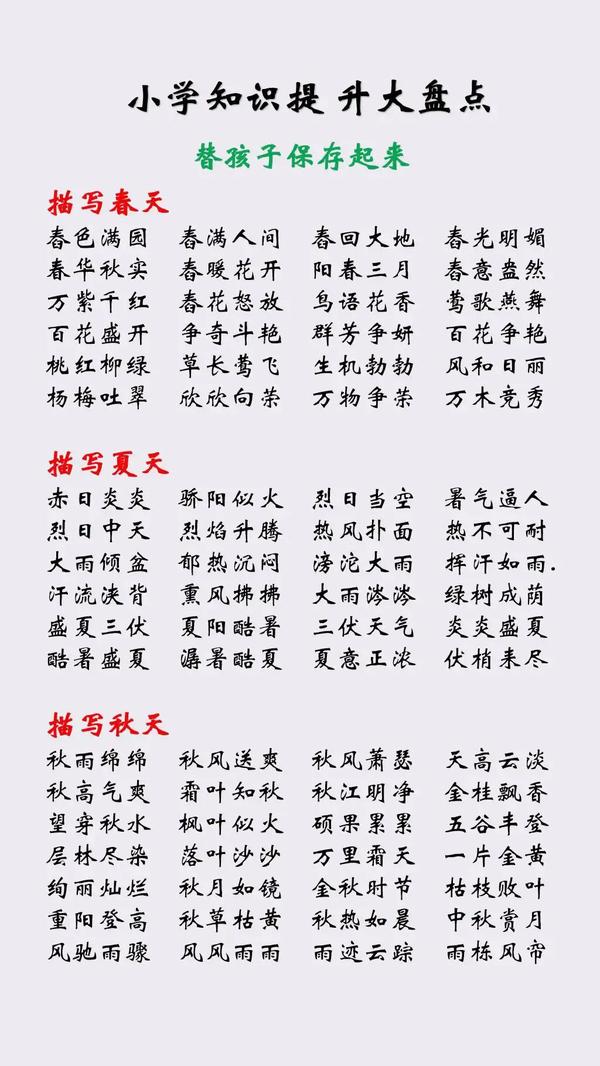 小学知识提 升大盘点
替孩子保存起来
描写春天
春色满园 春满人间 春回大地 春光明媚
春华秋实 春暖花开 阳春三月 春意盎然
万紫千红 春花怒放 鸟语花香 莺歌燕舞
百花盛开 争奇斗艳 群芳争妍 百花争艳
桃红柳绿 草长莺飞 生机勃勃 风和日丽
杨梅吐翠 欣欣向荣 万物争荣 万木竞秀
描写夏天
赤日炎炎 骄阳似火 烈日当空 暑气逼人
烈日中天 烈焰升腾 热风扑面 热不可耐
大雨倾盆 郁热沉闷 滂沱大雨 挥汗如雨.
汗流浃背 熏风拂拂 大雨涔涔 绿树成荫
盛夏三伏 夏阳酷暑 三伏天气 炎炎盛夏
酷暑盛夏 潺暑酷夏 夏意正浓 伏梢未尽
描写秋天
秋雨绵绵 秋风送爽 秋风萧瑟 天高云淡
秋高气爽 霜叶知秋 秋江明净 金桂飘香
望穿秋水 枫叶似火 硕果累累 五谷丰登
层林尽染 落叶沙沙 万里霜天 一片金黄
绚丽灿烂 秋月如镜 金秋时节 枯枝败叶
重阳登高 秋草枯黄 秋热如晨 中秋赏月
风驰雨骤 风风雨雨 雨迹云踪 雨栋风帘